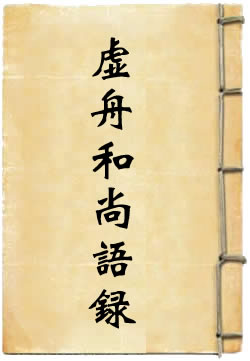 虛舟和尚語録